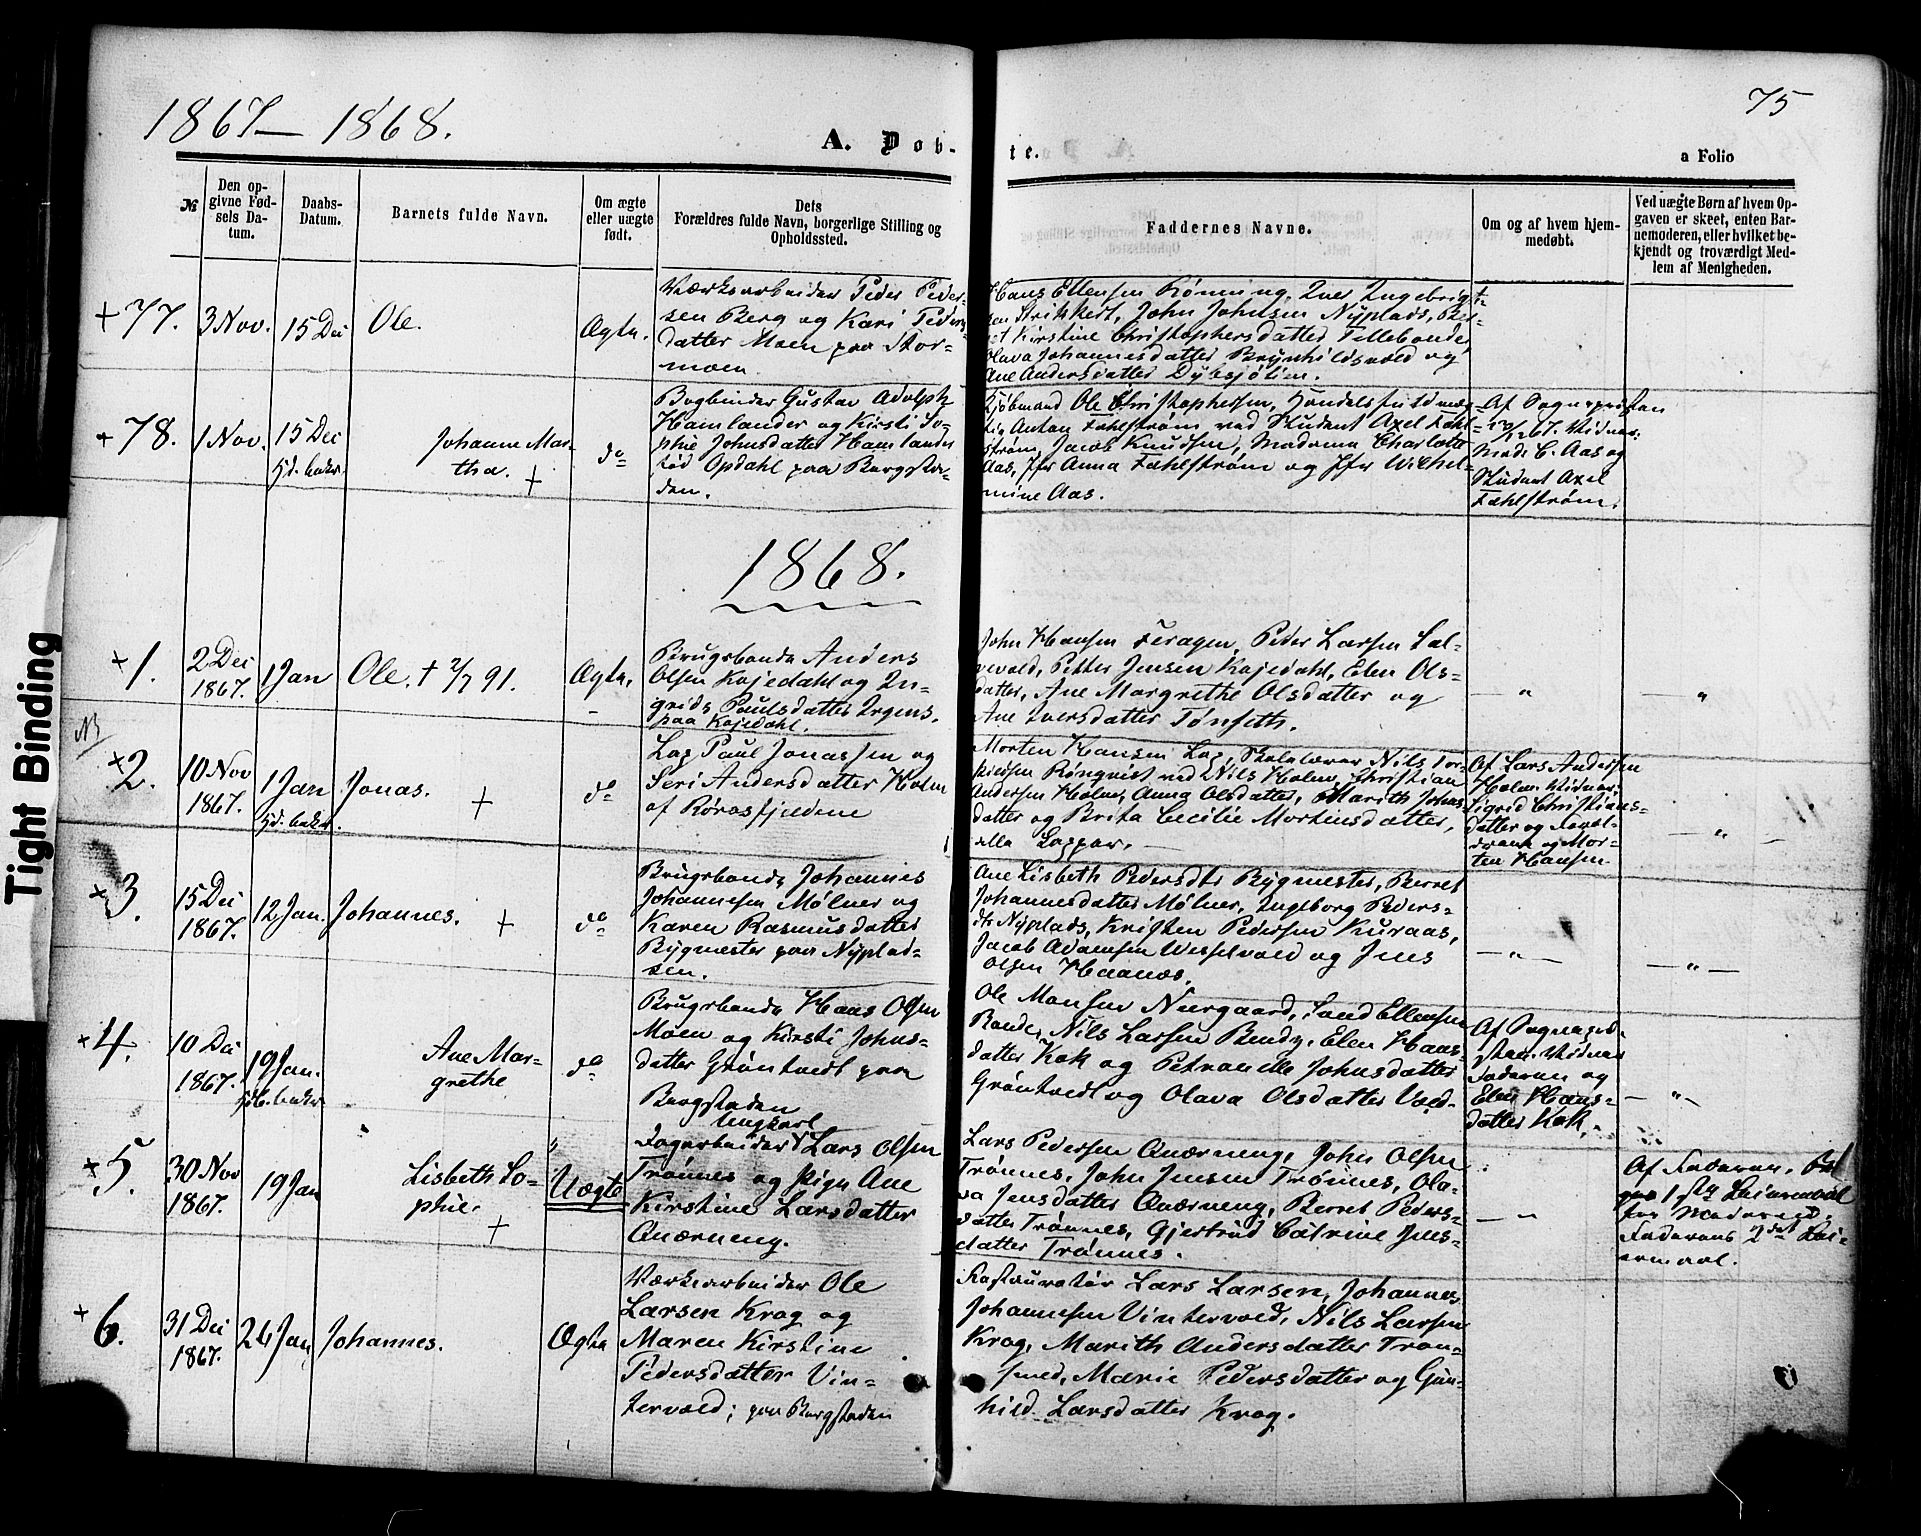 1867–1868.
75
A. Døb-
te.
a Folio
№
Den op-
givne Fød-
sels Da-
tum.
Daabs-
Datum.
Barnets fulde Navn.
Om ægte
eller uægte
født.
Dets
Forældres fulde Navn, borgerlige Stilling og
Opholdssted.
Faddernes Navne.
Om og af hvem hjem-
medøbt.
Ved uægte Børn af hvem Op-
gaven er skeet, enten Bar-
nemoderen, eller hvilket be-
kjendt og troværdigt Med-
lem af Menigheden.
+ 77.
3 Nov.
15 Dec
Ole.
Ægte.
Værksarbeider Peder Peder-
sen Berg og Kari Peders-
datter Moen paa Stor-
moen.
Hans Ellensen Rønning, Iver Ingebrigt-
sen Strikkert, John Johnsen Nyplads, Ber-
et Kirstine Christophersdatter Tillebonder
Olava Johannesdatter Brynhildsvold og
Ane Andersdatter Dybsjølien.
+ 78.
1 Nov.
15 Dec
Hd. bekr.
Johanne Mar-
tha.
+
do
Bogbinder Gustav Adolph
Hamlander og Kirsti So-
phie Johnsdatter Hamlander
fød Opdahl paa Bergsta-
den.
Kjøbmand Ole Christophersen, Handelsfuldmæg-
tig Anton Fahlstrøm ved Student Axel Fahl-
strøm, Jacob Knudsen, Madame Charlotte
Aas, Jfr Anna Fahlstrøm og Jfr Wilhel-
mine Aas.
Af Sognepresten
67. Vidner:
Mad. C. Aas og
Student Axel
Fahlstrøm.
1868.
+ 1.
2 Dec
1867.
1 Jan
Ole. + 2/7 91.
Ægte.
Brugsbonde Anders
Olsen Kojedahl og In-
grid Paulsdatter Irgens
paa Kojedahl.
John Hansen Feragen, Peder Larsen Sal-
vevold, Petter Jensen Kojedahl, Elen Ols-
datter, Ane Margrethe Olsdatter og
Ane Iversdatter Tønseth.
— " —
"
NB
+ 2.
10 Nov
1867.
1 Jan
Hd. bekr.
Jonas.
+
do
Lap Paul Jonassen og
Seri Andersdatter Holm
af Rørosfjeldene
Morten Hansen Lap, Skolelærer Nils Tor-
Rønqvist ved Nils Holm, Christian
Andersen Holm, Anna Olsdatter, Marith Johns-
datter og Brita Cecilie Mortensdatter,
alle Lapper. —
Af Lars Andersen
Holm. Vidner:
Sigrid Christians-
datter og
og Mor-
ten Hansen
— " —
+ 3.
15 Dec
1867.
12 Jan.
Johannes.
+
do
Brugsbonde Johannes
Johannesen Mølner og
Karen Rasmusdatter
Bygmester paa Nyplad-
sen.
Ane Lisbeth Pedersdtr Bygmester, Berret
Johannesdatter Mølner, Ingeborg Peders-
dtr Nyplads, Kristen Pedersen Kuraas,
Jacob Adamsen Wesselvold og Jens
Olsen Haanæs.
— " —
— " —
+ 4.
10 Dec
1867.
19 Jan.
Hd. bekr.
Ane Mar-
grethe
do
Brugsbonde Hans Olsen
Moen og Kirsti Johns-
datter Grøntvedt paa
Bergstaden
Ole Monsen Neergaard, Sand Ellensen
Bonde, Nils Larsen Bendz, Elen Hans-
datter Kok og Petronelle Johnsdatter
Grøntvedt og Olava Olsdatter Vold.
Af Sognepre-
sten. Vidner
Faderen og
Elen Hans-
datter Kok.
— " —
+ 5.
30 Nov
1867.
19 Jan
Lisbeth So-
phie.
+
"
Uægte
Ungkarl
Dagarbeider Lars Olsen
Trønnes og Pige Ane
Kirstine Larsdatter
Aaværneng.
Lars Pedersen Aaværneng, John Olsen
Trønnes, John Jensen Trønnes, Ola-
va Jensdatter Aaværneng, Berret Peders-
datter Trønnes, Gjertrud Catrine Jens-
datter Trønnes.
— "
Af Faderen.
1ste Leiermaal
for Moderen.
Faderens 2det Lei-
ermaal.
+ 6.
31 Dec
1867.
26 Jan
Johannes.
Ægte
Værksarbeider Ole
Larsen Krog og
Maren Kirstine
Pedersdatter Vin-
tervold; paa Bergstaden
Restauratør Lars Larsen, Johannes
Johannesen Vintervold, Nils Larsen
Krog, Marith Andersdatter Tron-
smed, Marie Pedersdatter og Gun-
hild Larsdatter Krog.
Tight Binding